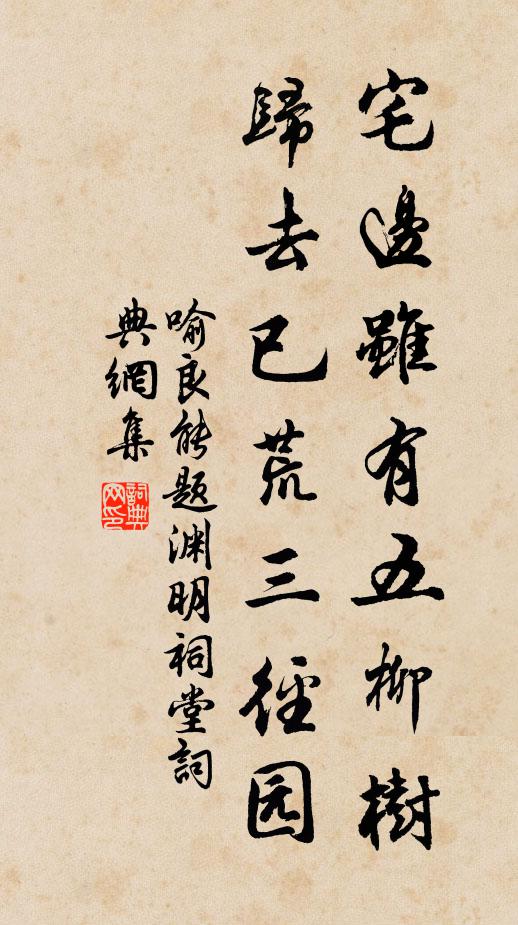 宅邊雖有五柳樹
歸去已荒三徑园
喻良能題渊明祠堂詞
典網集
詞典网印